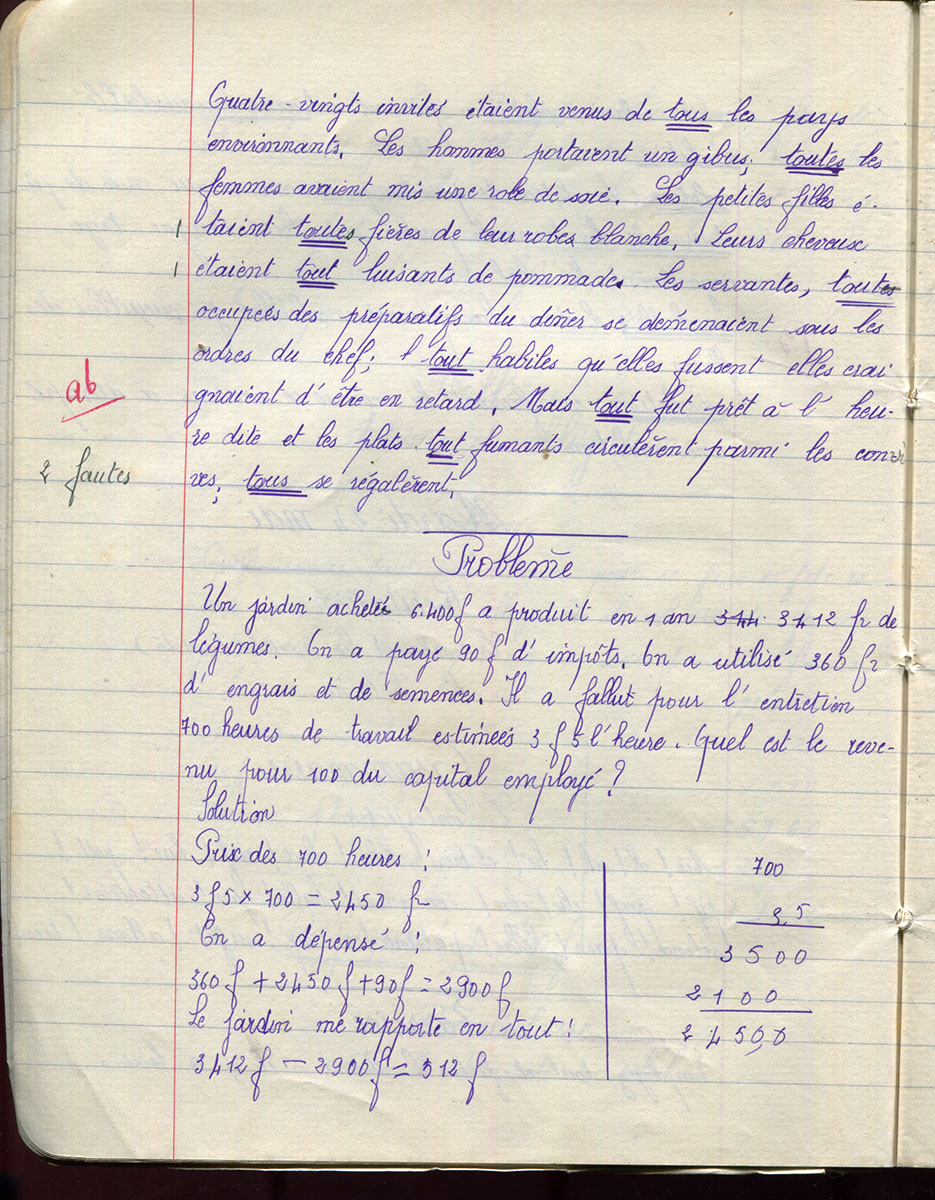 Quatre-vingts invités étaient venus de tous les pays
environnants. Les hommes portaient un gibus; toutes les
femmes avaient mis une robe de soie. Les petites filles é-
1 taient toutes fières de leur robes blanche. Leurs cheveux
1 étaient tout luisants de pommade. Les servantes, toutes
occupées des préparatifs du dîner se démenaient sous les
ordres du chef; tout habiles qu'elles fussent elles crai
ab
gnaient d'être en retard. Mais tout fut prêt à l'heu-
re dite et les plats tout fumants circulèrent parmi les convi
2 fautes
ves; tous se régalèrent.
Problème
Un jardin acheté 6.400f a produit en 1 an 344 3412 fr de
légumes. On a payé 90f d'impôts. On a utilisé 360 fr
d'engrais et de semences. Il a fallut pour l'entretien
700 heures de travail estimées 3f5 l'heure. Quel est le reve-
nu pour 100 du capital employé?
Solution
Prix des 700 heures:
3f5 × 700 = 2450 fr
On a dépensé:
360f + 2450f + 90f = 2900f
Le jardin me rapporte en tout:
3412f - 2900f = 512f
700
3,5
3500
2100
2450,0